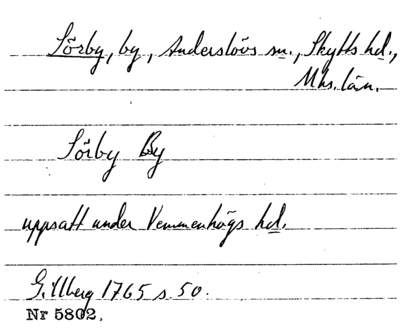 Sörby, by, Anderslövs sn., Skytts hd.,
Mhs. län.
Sörby By
uppsatt under Vemmenhögs hd.
Gillberg 1765 s 50.
Nr 5802.